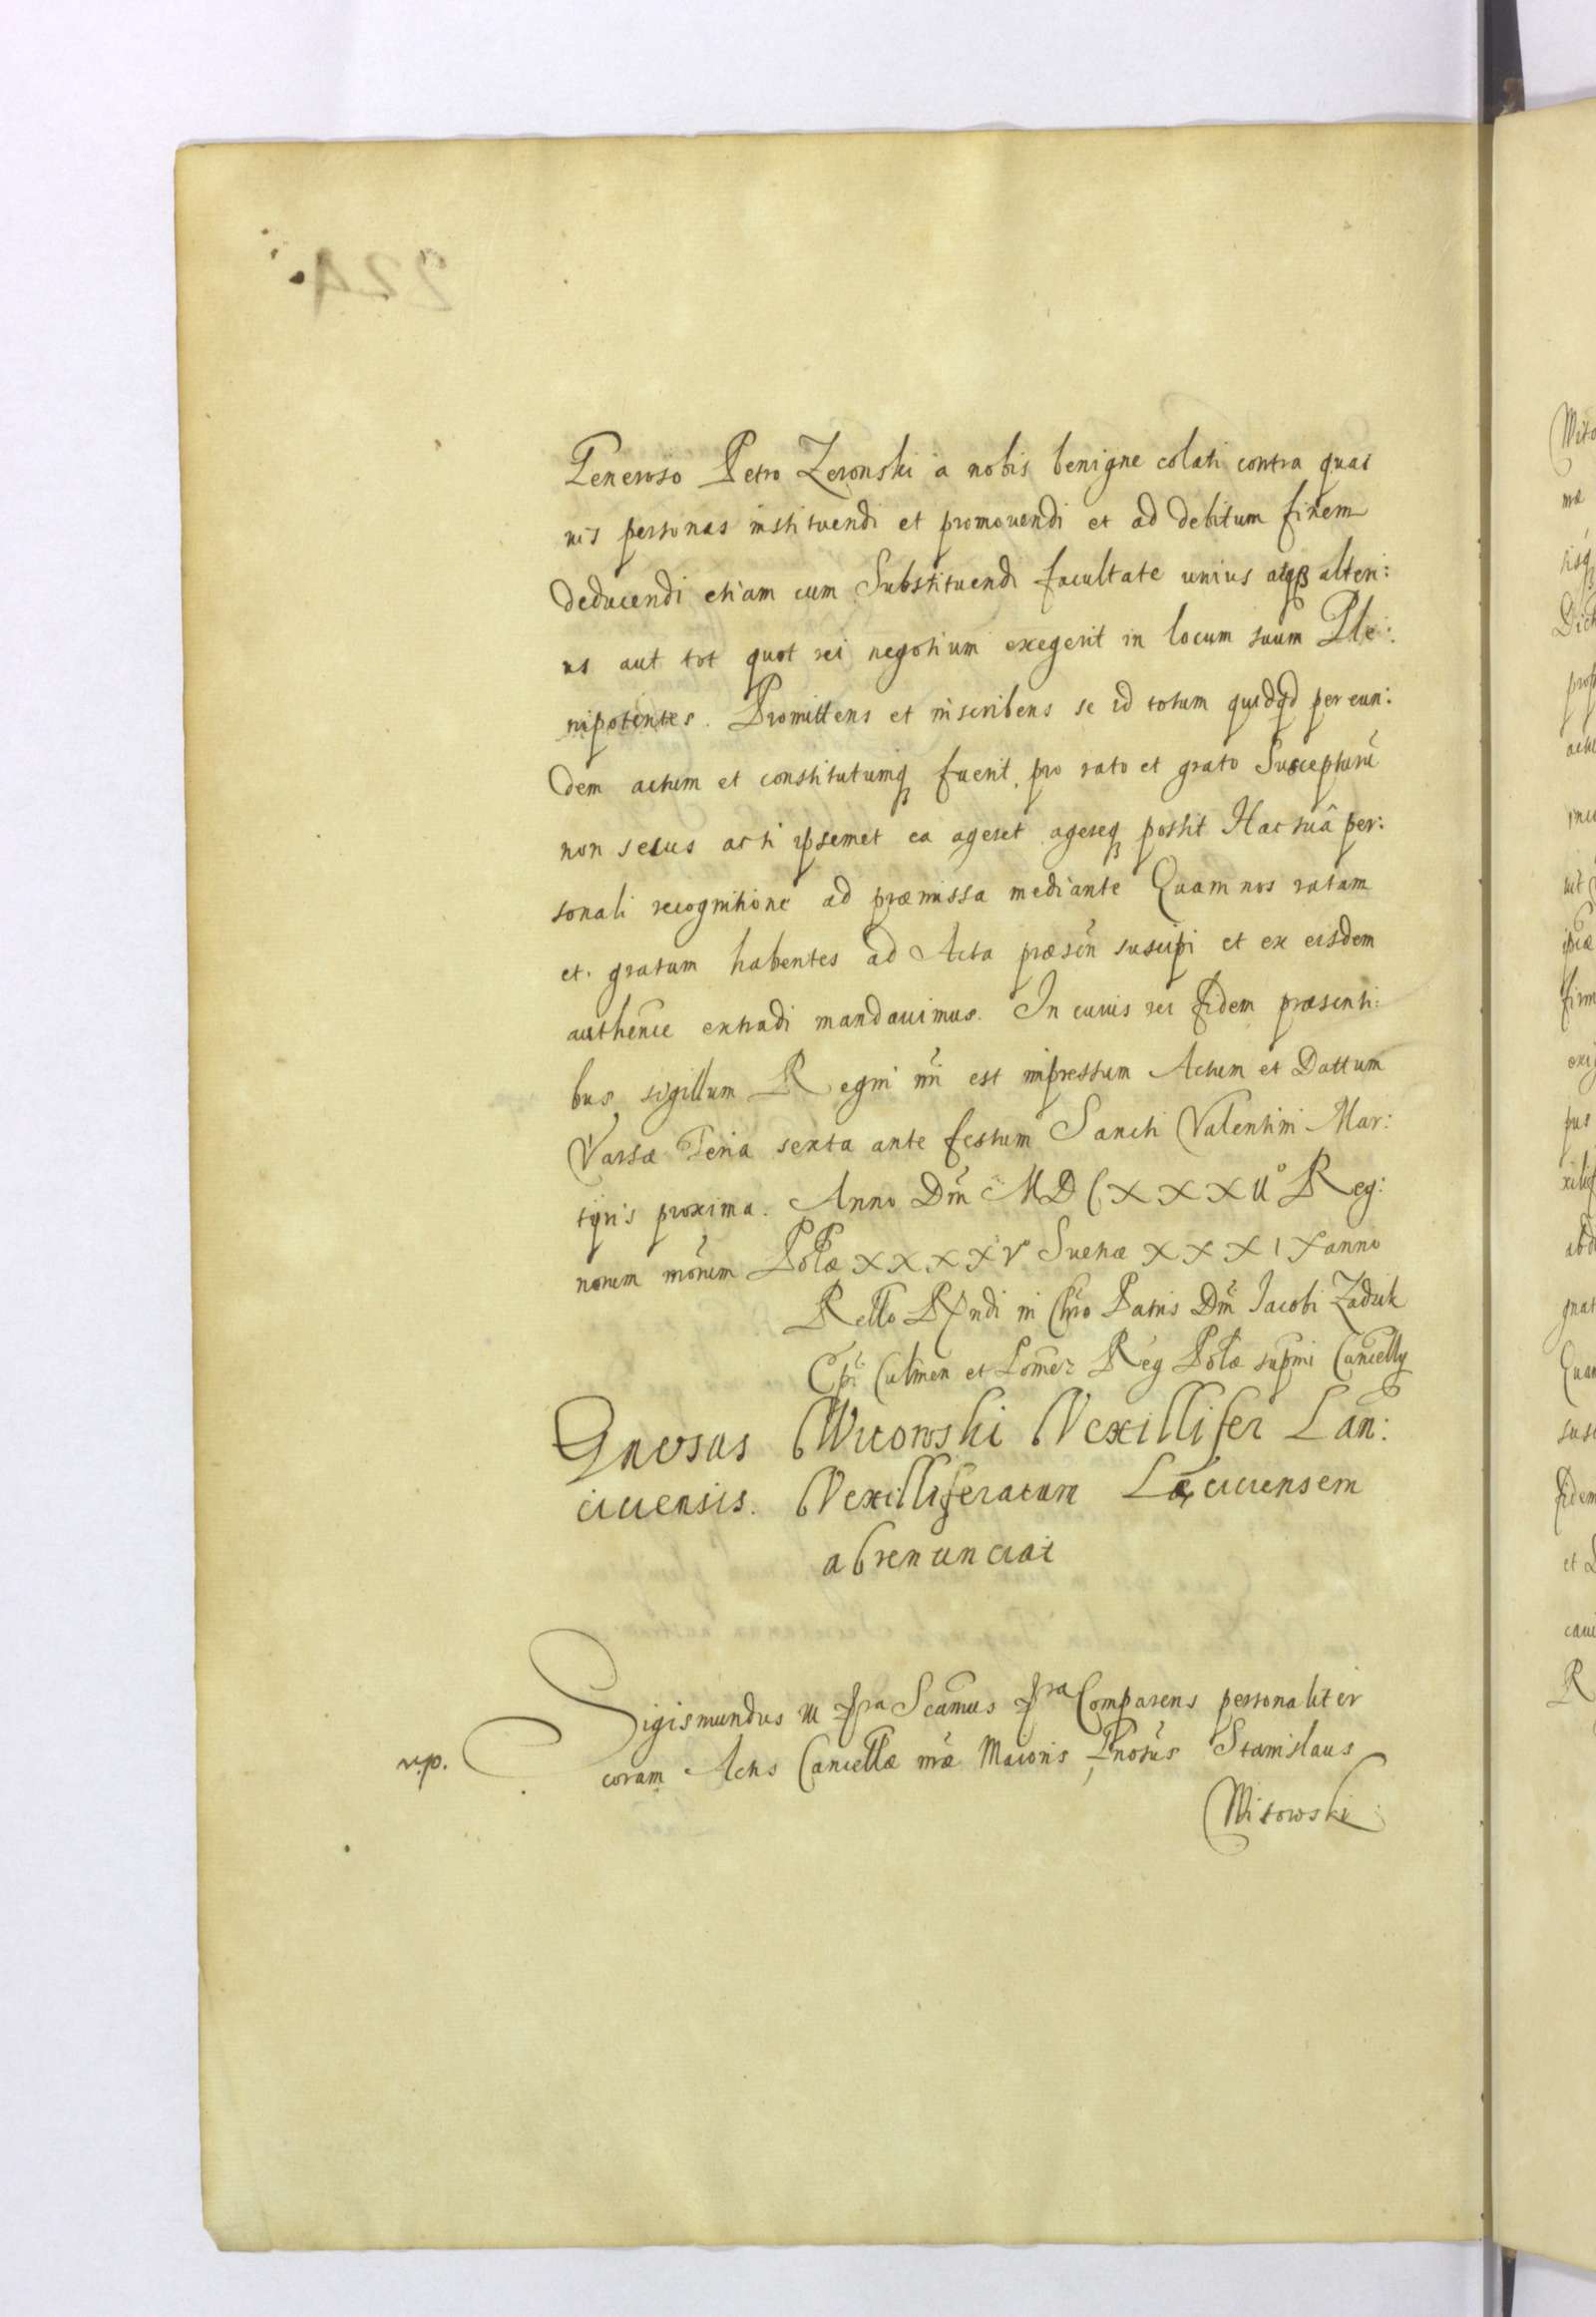 Generoso Petro Zeronski a nobis benigne colati contra quas
uis personas instituendi et promouendi et ad debitum finem
deducendi etiam cum Substituendi facultate unius atqz alteri:
us aut tot quot rei negotium exegerit in locum suum Ple:
nipotentes. Promittens et inscribens se id totum quidqd per eun:
dem actum et constitutumq fuerit, pro rato et grato Suscepturũ
non secus ac si ipsemet ea ageret agereq possit Hac suâ per:
sonali recognitione ad præmissa mediante Quam nos ratam
et gratam habentes ad Acta præsen̄ suscipi et ex eisdem
authen̄ce extradi mandauimus. In cuius rei fidem præsenti:
bus sigillum Regni nr̄i est impressum Actum et Dattum
Varsæ Feria sexta ante festum Sancti Valentini Mar:
tyris proxima. Anno Dn̄i MDCXXXII° Reg:
norum nr̄orum Polæ XXXXV Suetiæ XXXIX anno
Rello Rndi in Chro Patris Dn̄i Jacobi Zadzik
Epi Culmen et Pomez Reg Polæ supmi Cancelly
Gnosus Witowski Vexillifer Lan:
ciciensis. Vexilliferatum Læciciensem
abrenunciat
Sigismundus III ſſra Scamus ſſra Comparens personaliter
coram Actis Cancellæ nr̄æ Maioris, Gnosus Stanislaus
rp.
Witowski